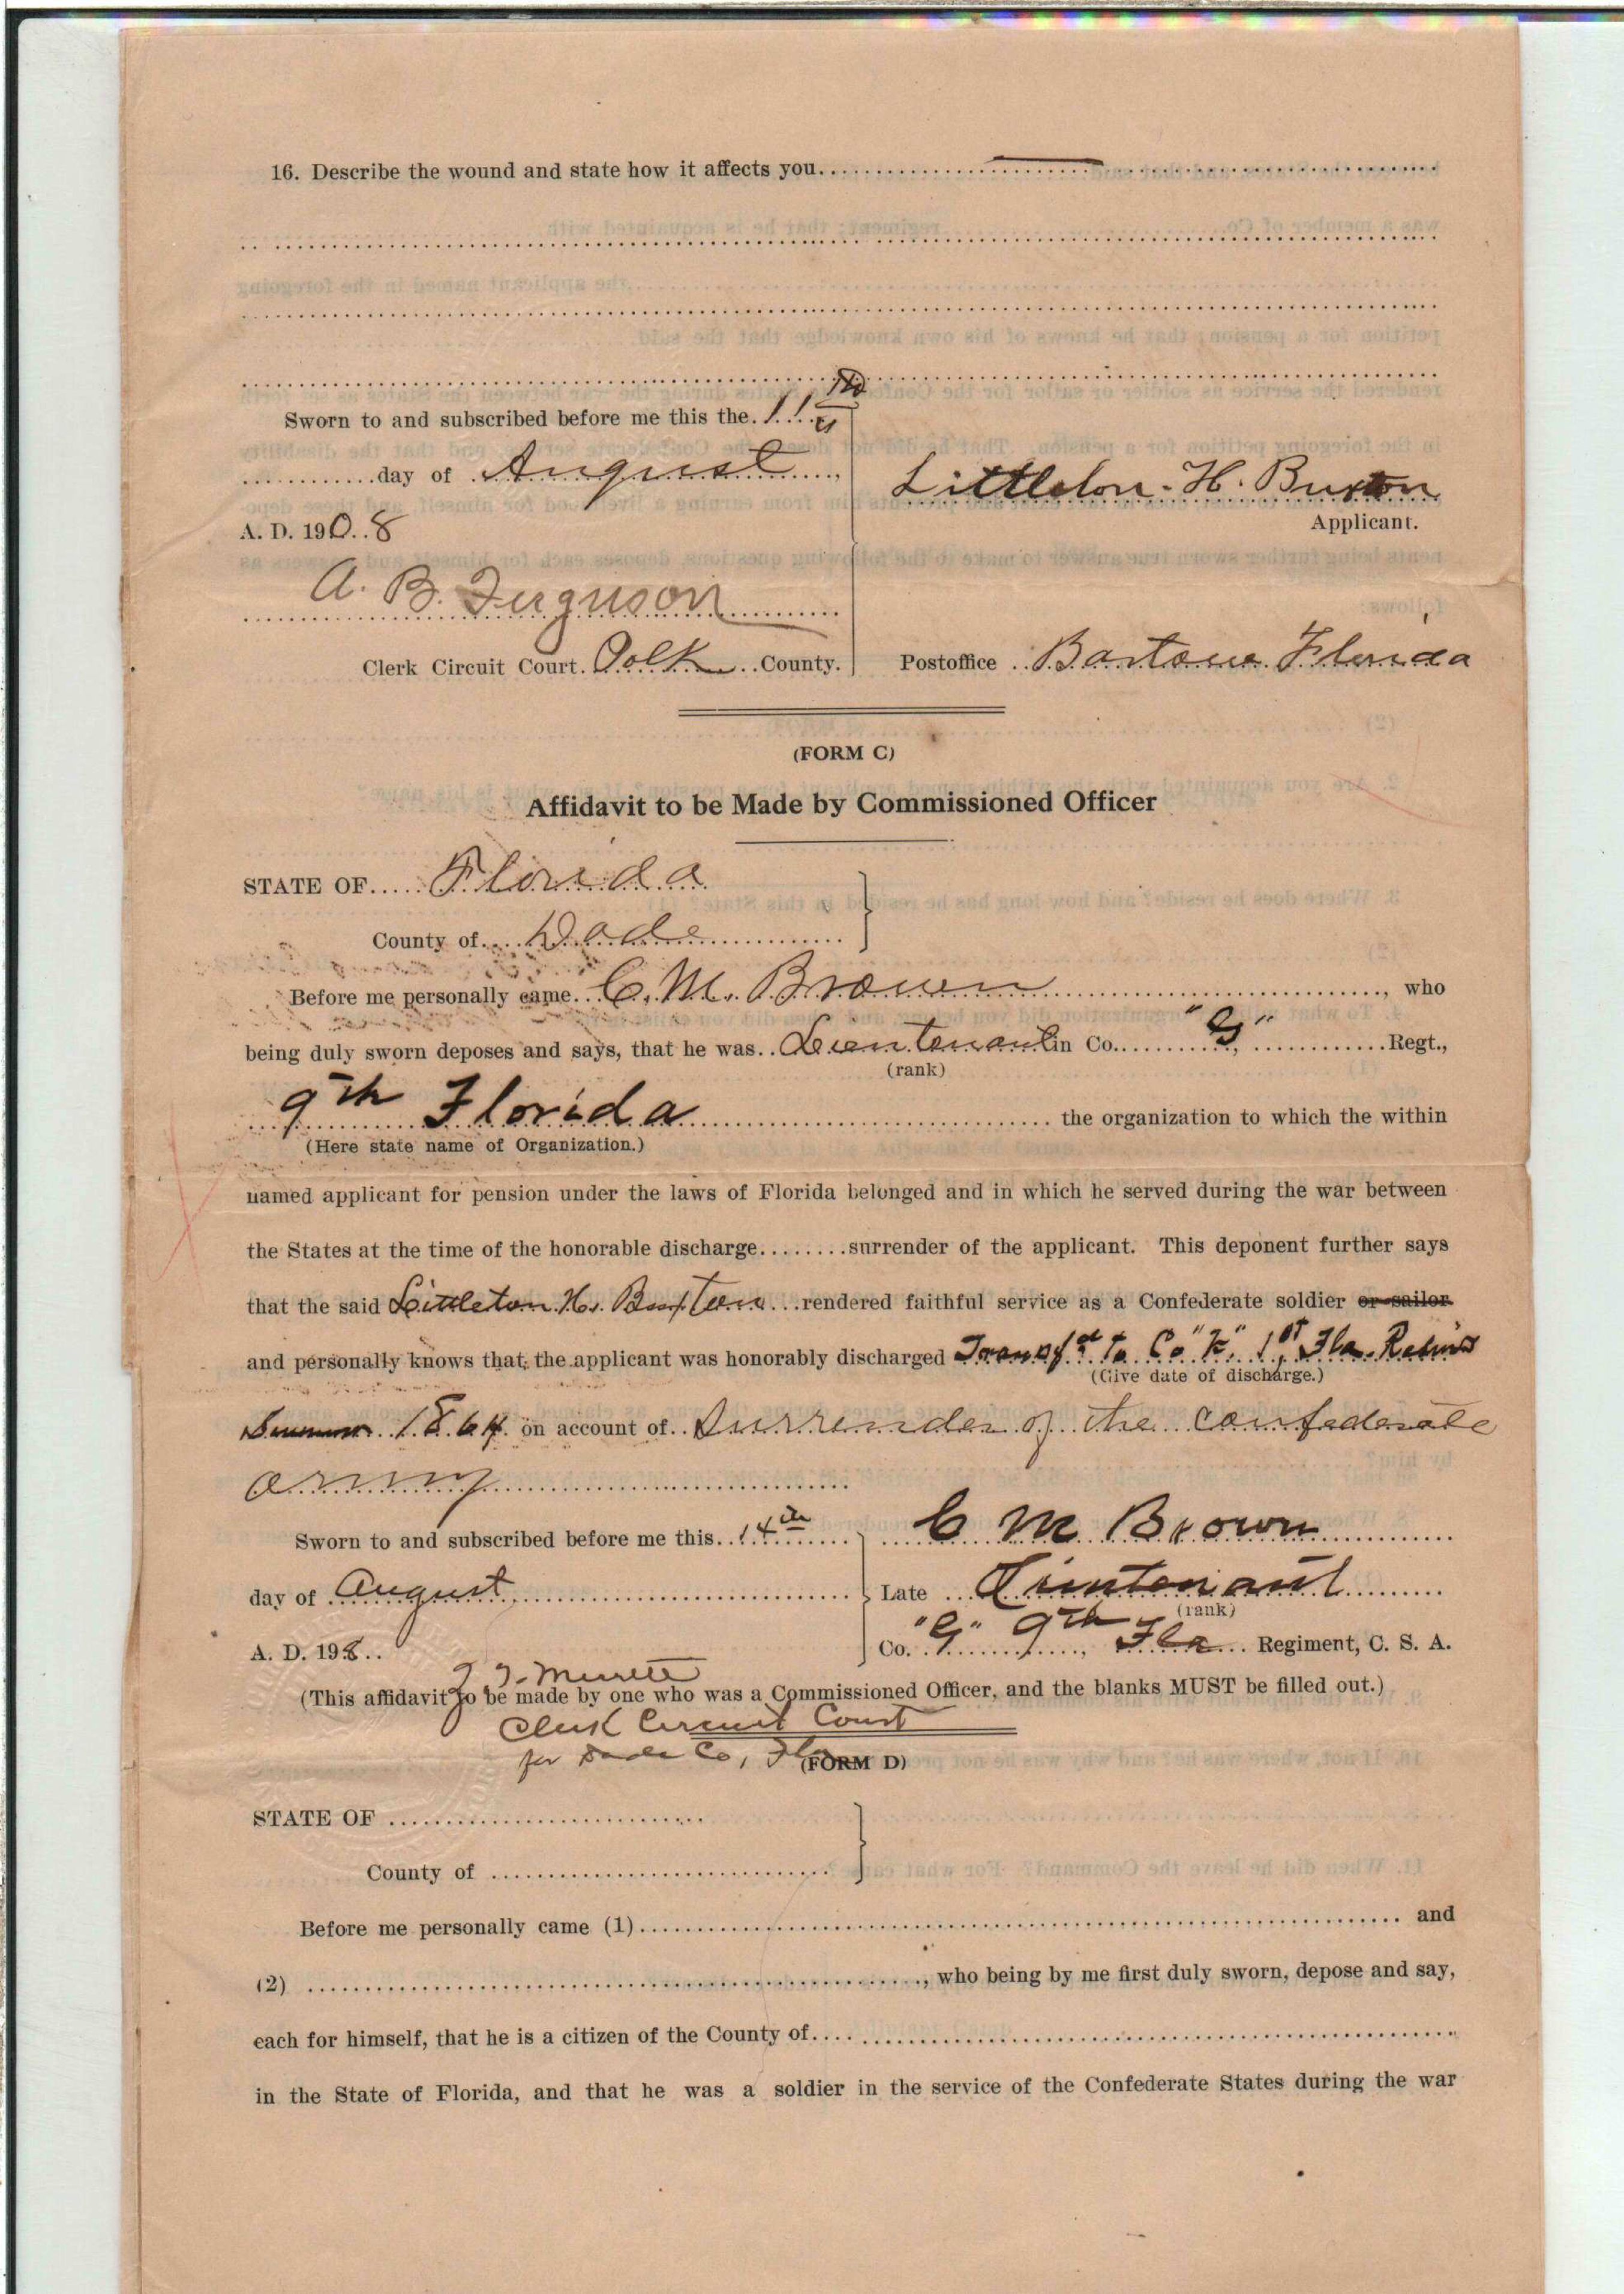 16. Describe the wound and state how it affects you
Sworn to and subscribed before me this the 11th
day of August
A. D. 1908
Littleton. H. Buxton
Applicant.
A. B. Ferguson
Clerk Circuit Court. Polk County.
Postoffice Bartow Florida
(FORM C)
Affidavit to be Made by Commissioned Officer
STATE OF Florida
County of Dade
Before me personally came C. M. Brown, who
being duly sworn deposes and says, that he was Lieutenant in Co. "G" Regt.,
(rank)
9th Florida the organization to which the within
(Here state name of Organization.)
named applicant for pension under the laws of Florida belonged and in which he served during the war between
the States at the time of the honorable discharge........surrender of the applicant. This deponent further says
that the said Littleton H. Buxton rendered faithful service as a Confederate soldier or sailor
and personally knows that the applicant was honorably discharged Transfd to Co "K" 1st Fla.
(Give date of discharge.)
Summer 1864 on account of Surrender of the Confederate
army
Sworn to and subscribed before me this 14th
C M Brown
day of August
Late Lieutenant
(rank)
A. D. 198
Co. "G" 9th, Fla Regiment, C. S. A.
(This affidavit to be made by one who was a Commissioned Officer, and the blanks MUST be filled out.)
Clerk Circuit Court
for Dade Co, Fla
(FORM D)
STATE OF
County of
Before me personally came (1) and
(2) , who being by me first duly sworn, depose and say,
each for himself, that he is a citizen of the County of
in the State of Florida, and that he was a soldier in the service of the Confederate States during the war